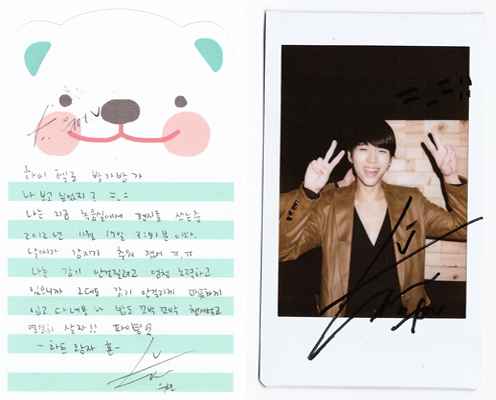 하이 헬로 방가방가
나 보고 싶었지? =_=
나는 지금 녹음실에서 편지를 쓰는중
2012년 11월 17일 3:51분 이다.
날씨가 갑자기 추워 졌어 ㅠ.ㅠ
나는 감기 안걸릴려고 엄청 노력하고
있으니까 그대도 감기 안걸리게 따뜻하게
입고 다녀용 밥도 꼬박 꼬박 챙겨먹고
열심히 살자!!
-하트 왕자 훈-
=_=!!